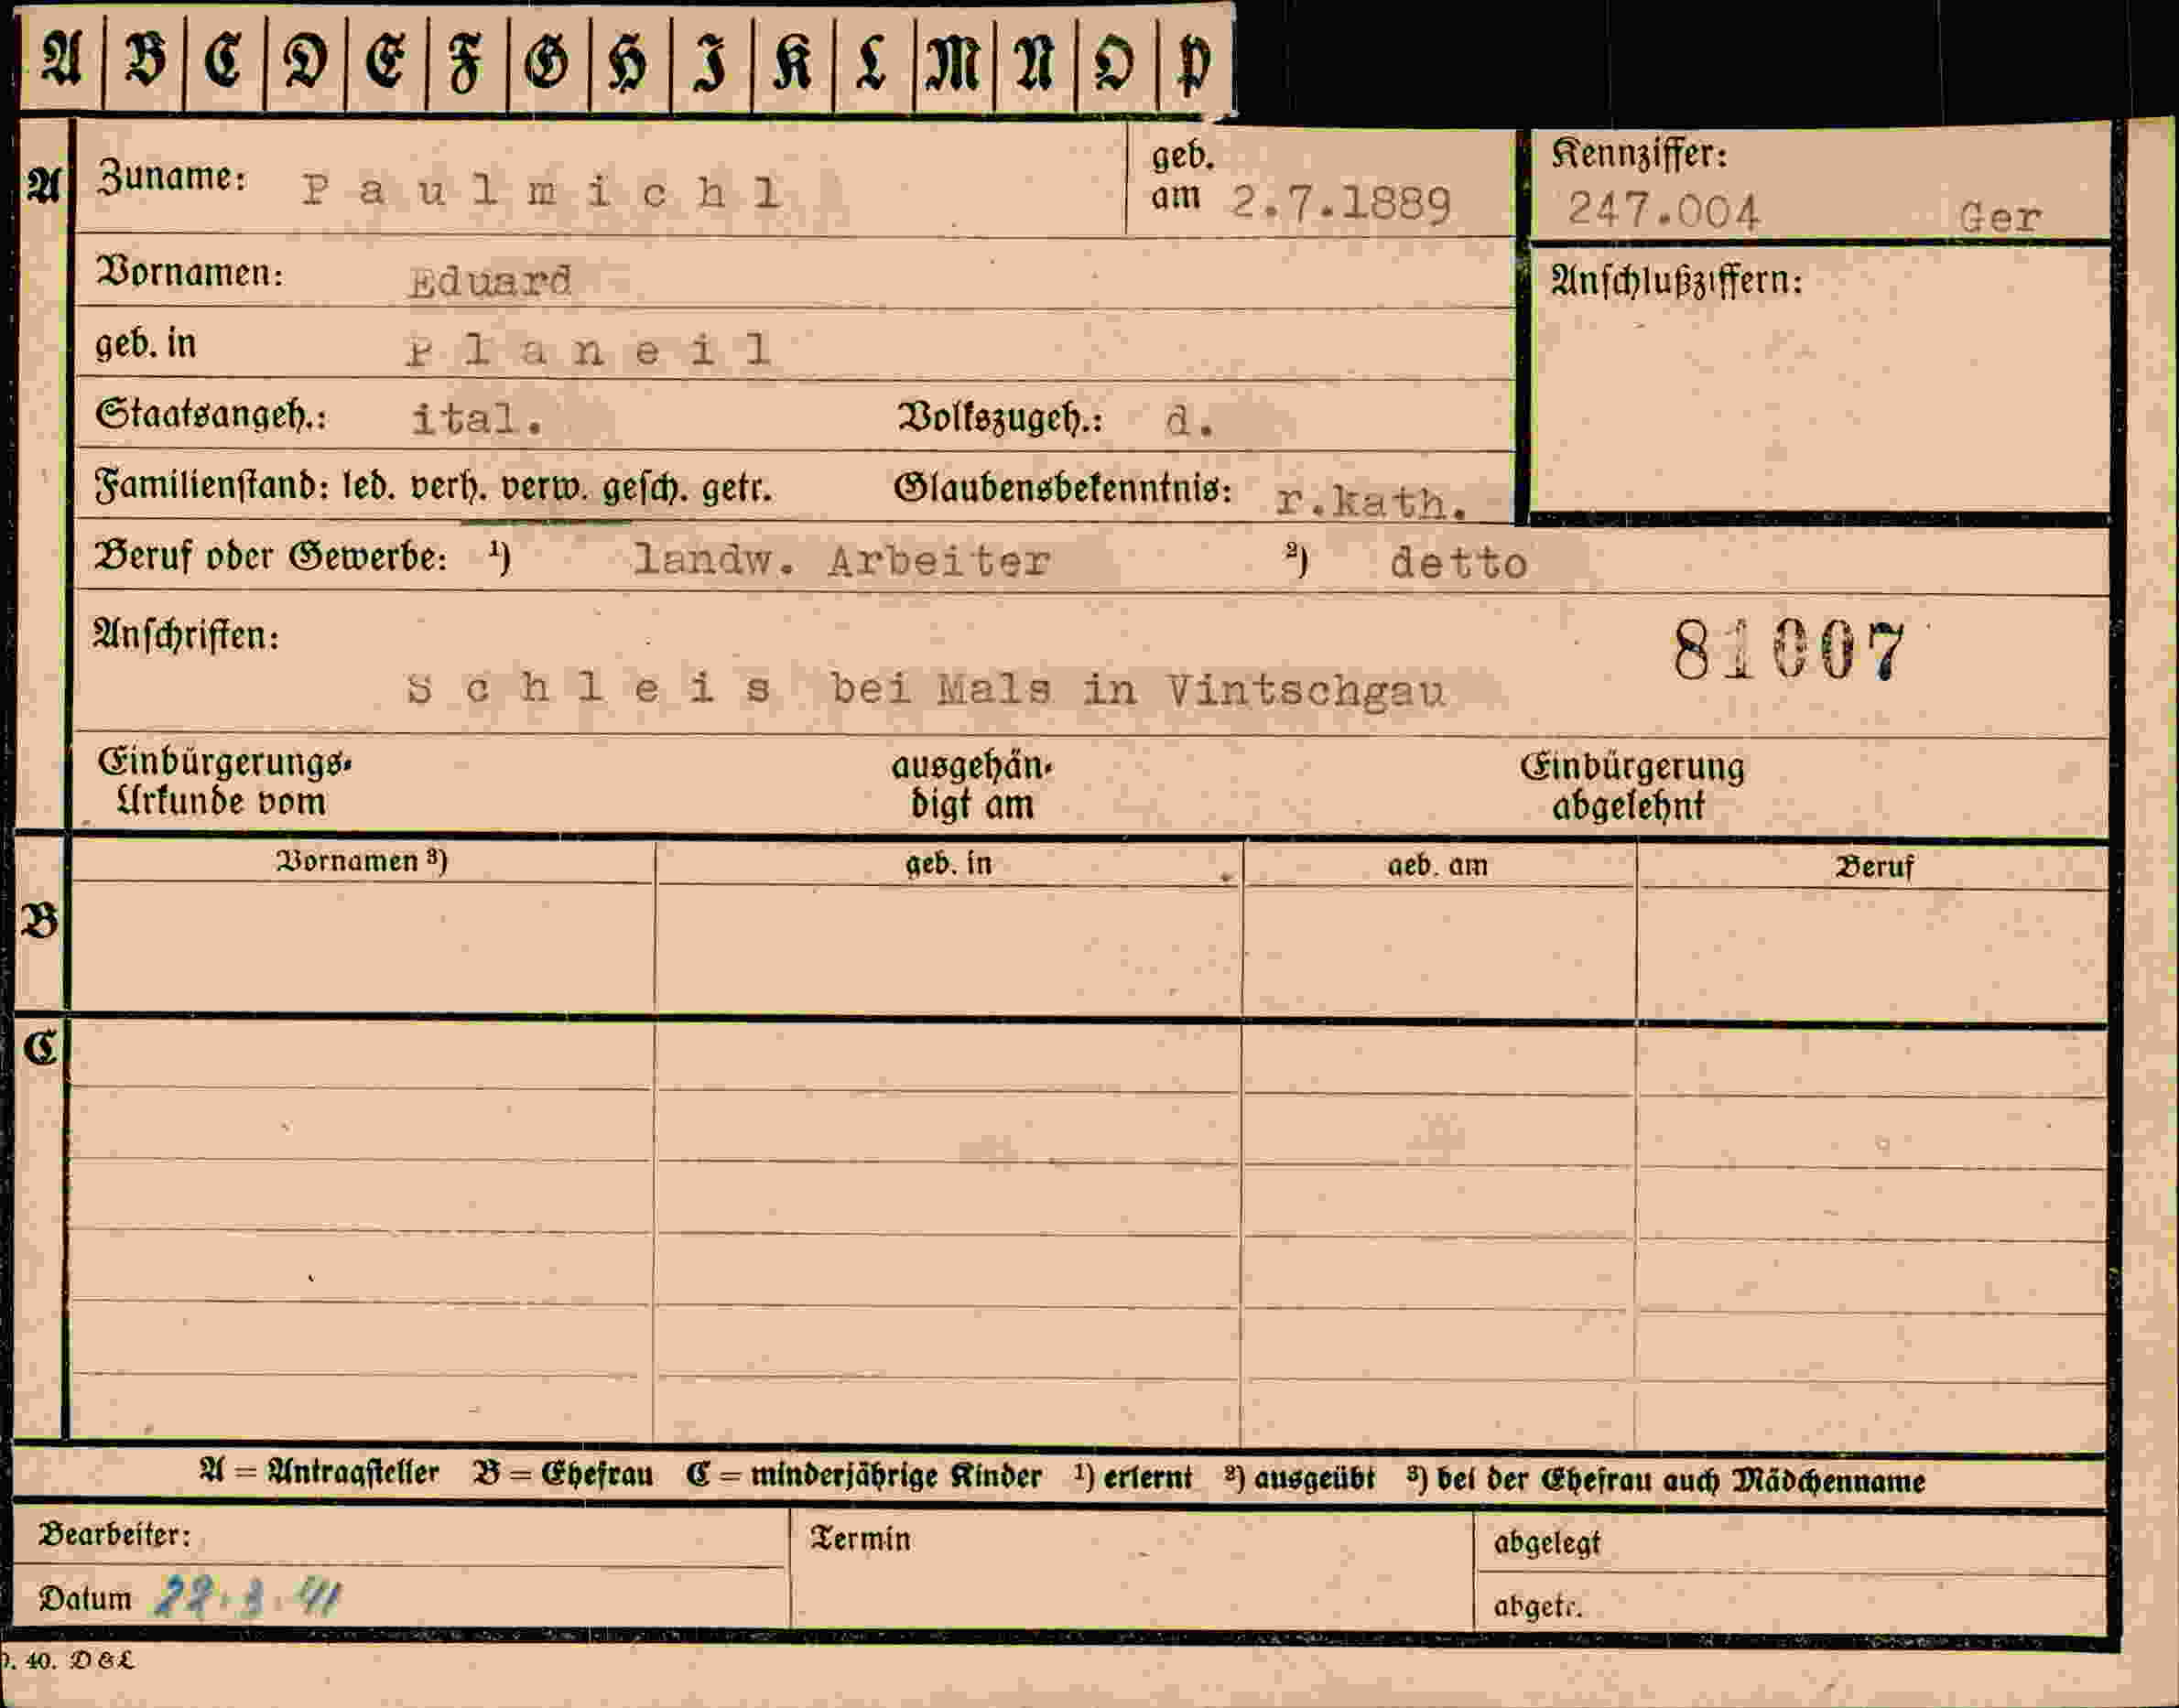 A B C D E F G H I K L M N O P
A Zuname: Paulmichl geb. am 2.7.1889 Kennziffer: 247.004 Ger
Vornamen: Eduard Anschlußziffern:
geb. in Planeil
Staatsangeh.: ital. Volkszugeh.: d.
Familienstand: led. verh. verw. gesch. getr. Glaubensbekenntnis: r.kath.
Beruf oder Gewerbe: ¹) landw. Arbeiter ²) detto
Anschriften: 81007
Schleis bei Mals in Vintschgau
Einbürgerungs- ausgehän- Einbürgerung
Urkunde vom digt am abgelehnt
Vornamen ³) geb. in geb. am Beruf
B
C
A = Antragsteller B = Ehefrau C = minderjährige Kinder ¹) erlernt ²) ausgeübt ³) bei der Ehefrau auch Mädchenname
Bearbeiter: Termin abgelegt
Datum 22.3.41 abgetr.
40. D & L